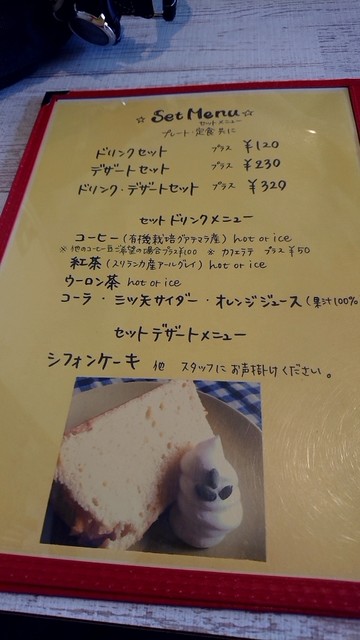 ☆ Set Menu ☆
セットメニュー
プレート・定食共に
ドリンクセット プラス ¥120
デザートセット プラス ¥230
ドリンク・デザートセット プラス ¥320
セットドリンクメニュー
コーヒー(有機栽培グアテマラ産) hot or ice
※他のコーヒー豆ご希望の場合プラス¥100 ※カフェラテ プラス¥50
紅茶(スリランカ産アールグレイ) hot or ice
ウーロン茶 hot or ice
コーラ・三ツ矢サイダー・オレンジジュース(果汁100%
セットデザートメニュー
シフォンケーキ 他 スタッフにお声掛けください。